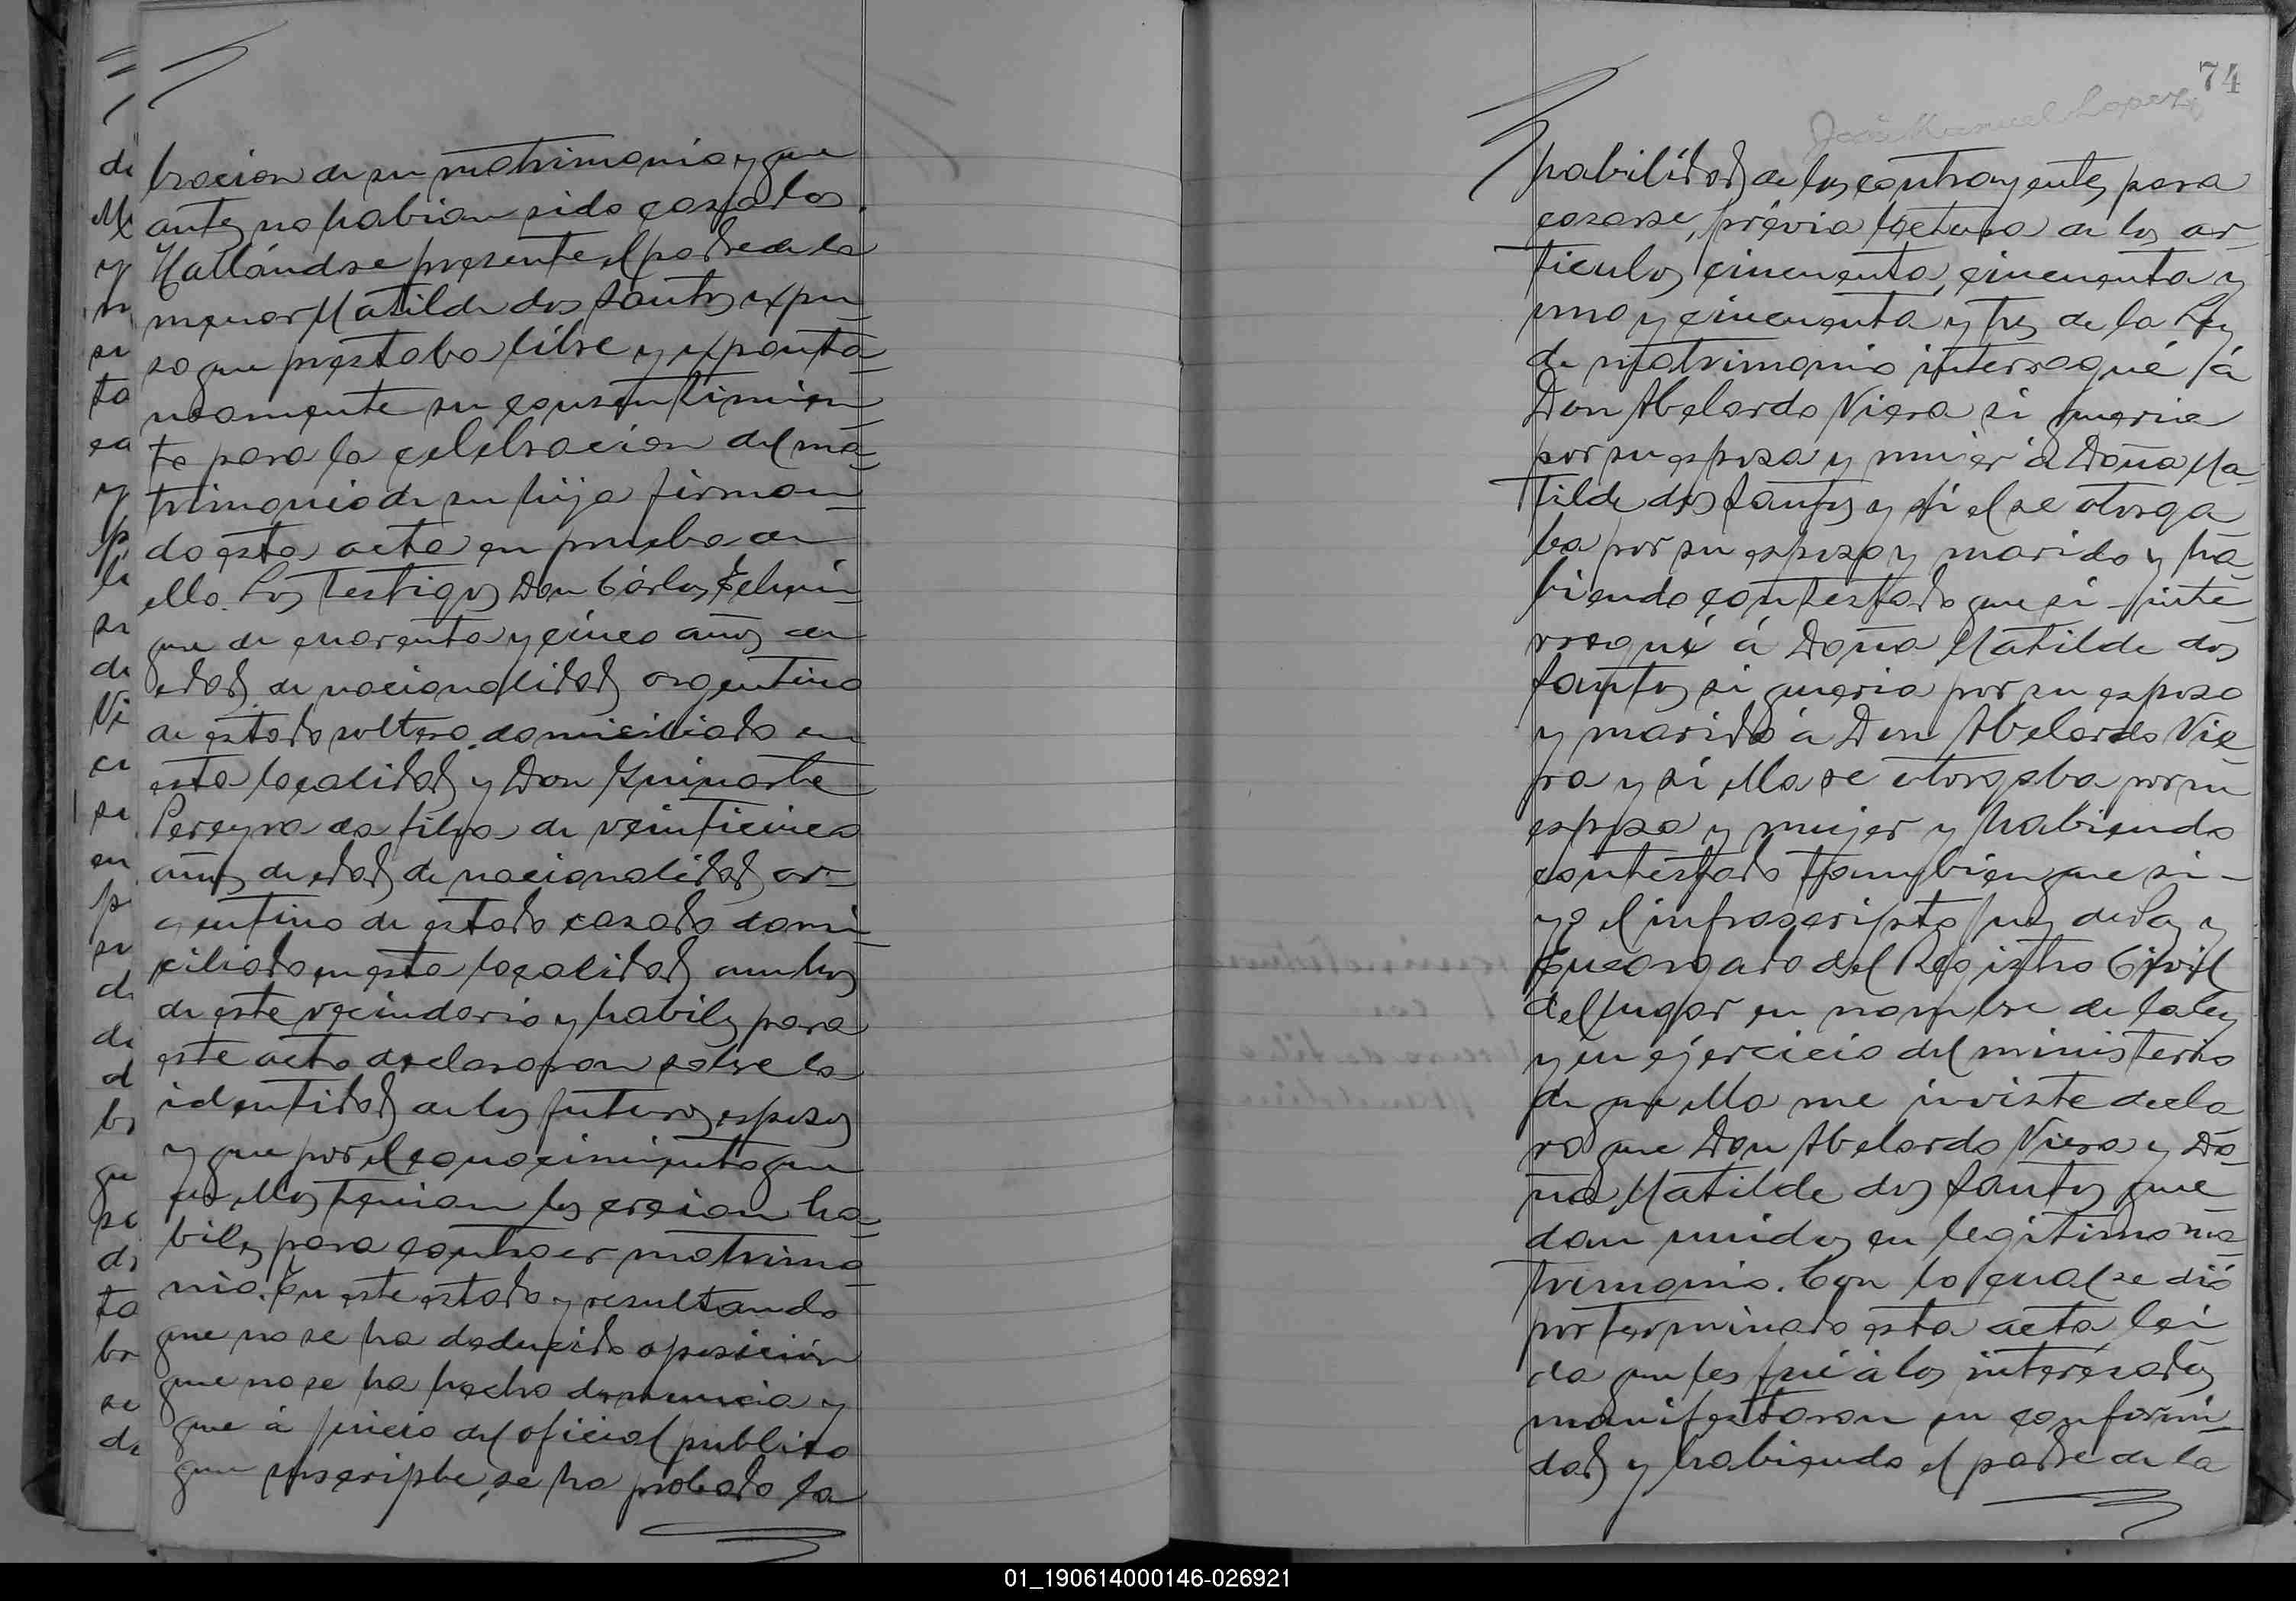 bracion de su matrimonio y que
antes no habian sido casados.
Hallándse presente el padre de la
menor Matilde dos Santos expu-
so que prestaba libre y expontá-
neamente su consentimien-
to para la celebracion del ma-
trimonio de su hija firman-
do esta acta en prueba de
ello. Los testigos Don Cárlos
que de cuarenta y cinco años de
edad de nacionalidad argentino
de estado soltero domiciliado en
esta localidad y Don
Pereyra da Silva de veinticinco
años de edad de nacionalidad ar-
gentino de estado casado domi-
ciliado en esta localidad ambos
de este vecindario y habiles para
este acto declararon sobre la
identidad de los futuros esposos
y que por el conocimiento que
de ellos tenian los creian ha-
biles para contraer matrimo-
nio. En este estado y resultando
que no se ha deducido oposición
que no se ha hecho denuncia y
que á juicio del oficial publico
que suscripbe, se ha probado la
74
José Manuel Lopez
habilidad de los contrayentes para
casarse, prévia lectura de los ar-
ticulos cincuenta, cincuenta y
uno y cincuenta y tres de la Ley
de matrimonio interrogué á
Don Abelardo Viera si queria
por su esposa y mujer á Doña Ma-
tilde dos Santos y si el se otorga
ba por su esposo y marido y ha-
biendo contestado que si - inte-
rrogué á Doña Matilde dos
Santos si queria por su esposo
y marido á Don Abelardo Vie-
ra y si ella se otorgaba por su
esposa y mujer y habiendo
contestado tambien que si -
yo el infrascripto Juez de Paz y
Encargado del Registro Civil
del lugar en nombre de la ley
y en ejercicio del ministerio
de que ella me inviste decla
ro que Don Abelardo Viera y Do-
ña Matilde dos Santos que
dan unidos en legitimo ma-
trimonio. Con lo cual se dió
por terminado esta acta lei
da que les fué á los interesados
manifestaron su conformi-
dad y habiendo el padre de la
01_190614000146-026921